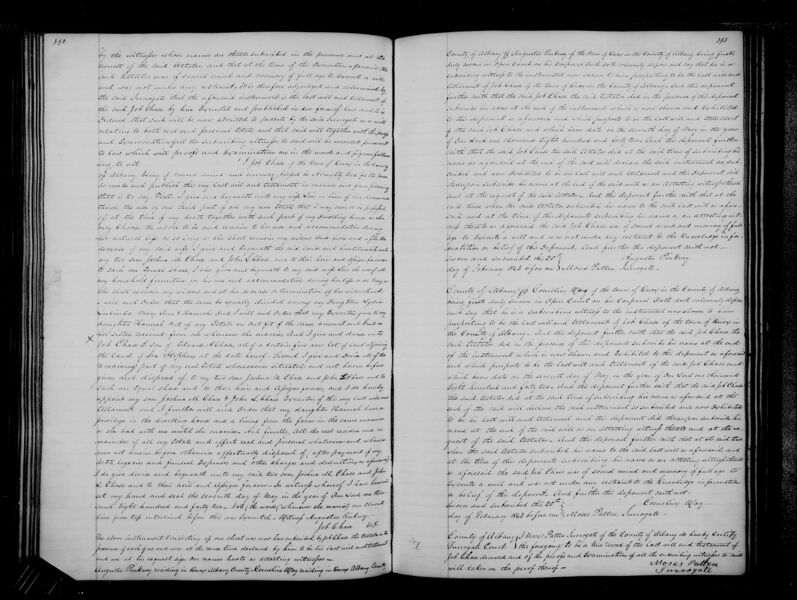 392
by the witnesses whose names are thereto subscribed in the presence and at the
request of the said testator, and that at the time of the Execution aforesaid the
said testator was of sound mind and memory of full age to Execute a will
and was not under any restraint, It is therefore adjudged and determined by
the said Surrogate that the aforesaid instrument is the last will and testament of
the said Job Chase by him Executed and published in due form of law and it is
Ordered that said will be now admitted to probate by the said Surrogate as a will
relating to both real and personal Estate and that said will together with the proofs
and Examination of the subscribing witnesses to said will be recorded pursuant
to law which will proofs and Examination are in the words and figures following
to wit. I Job Chase of the town of Knox in the County
of Albany being of sound mind and memory blessed be Almighty God for the same
do make and publish this my last will and testament in manner and form following
that is to say First. I give and bequeath unto my wife in lieu of her dower
thirds the use of one third part of all my real Estate that I may own or be possessed
of at the time of my death together with such part of my dwelling house as she
may Choose the above to be and remain to her use and accommodation during
her natural life or so long as she shall remain my widow and from and after the
decease of my said wife I give and bequeath the said land and hereditaments unto
my two sons Joshua M. Chase and John L. Chase and to their heirs and assigns forever
to each an Equal share, I also give and bequeath to my said wife the use of all
my household furniture for her use and accommodation during her life or so long as
she shall remain my widow and at her decease or termination of her widowhood
I will and Order that the same be equally divided among my Daughters Lydia
Lucinda, Mary Ann & Hannah And I will and Order that my Executors give to my
daughter Hannah out of my Estate an Outfit of the same amount and kind as
her Sisters received from me when she marries And I give and devise unto
X Job Chase 2d son of Edward Chase, out of a certain five acre lot of land adjoining
the lands of Ira Stephens at the date hereof. Second. I give and devise all the
remaining part of my real Estate whatsoever situated and not herein before
given and disposed of to my two sons Joshua M. Chase and John L. Chase and to
each an Equal share and to their heirs and assigns forever, and I do hereby
appoint my sons Joshua M. Chase & John L. Chase Executors of this my last will and
testament and I further will and Order that my daughter Hannah have a
privilege in the dwelling house and a living from the farm in the same manner
as she had with me until she marries And finally, All the rest residue and re
mainder of all my Estate and effects real and personal whatsoever and where
soever not herein before otherwise effectually disposed of after payment of my
debts legacies and funeral Expenses and other charges and deductions as aforesaid
I do give devise and bequeath unto my said two sons Joshua M. Chase and John
L. Chase and to their heirs and assigns forever. In witness whereof I have hereunto
set my hand and seal the seventh day of May in the year of Our Lord one thou
sand Eight hundred and forty two.
Job Chase L.S.
The above instrument consisting of one sheet was now here subscribed by Job Chase the testator in the
presence of each of us and was at the same time declared by him to be his last will and testament
and we at his request sign our names hereto as attesting witnesses
Augustus Pinkney residing in Knox Albany County Cornelius Way residing in Knox Albany County
393
County of Albany ss Augustus Pinkney of the town of Knox in the County of Albany being first
duly sworn in Open Court on his Corporal Oath doth solemnly depose and say that he is a
subscribing witness to the instrument now shown to him purporting to be the last will and
testament of Job Chase of the town of Knox in the County of Albany And this deponent
further saith that the said Job Chase the said testator did in the presence of this deponent
subscribe his name at the end of the instrument which is now shown and Exhibited
to this deponent as aforesaid and which purports to be the last will and testament
of the said Job Chase and which bears date on the seventh day of May in the year
of Our Lord one thousand Eight hundred and forty two And this deponent further
saith that the said Job Chase the said testator did at the said time of subscribing his
name as aforesaid at the end of the said will declare the said instrument so sub
scribed and now Exhibited to be his last will and testament and this deponent did
thereupon subscribe his name at the end of the said will as an attesting witness thereto
and at the request of the said testator. And this deponent further saith that at the
said time when the said testator subscribed his name to the said last will as afore
said and at the time of this deponent subscribing his name as an attesting wit
ness thereto as aforesaid the said Job Chase was of sound mind and memory of full
age to Execute a will and was not under any restraint to the knowledge infor
mation or belief of this deponent. And further this deponent saith not
Sworn and subscribed this 20th Augustus Pinkney
day of February 1843 before me Moses Patten Surrogate
County of Albany ss Cornelius Way of the town of Knox in the County of Albany
being first duly sworn in Open Court on his Corporal Oath doth solemnly depose
and say that he is a subscribing witness to the instrument now shown to him
purporting to be the last will and testament of Job Chase of the town of Knox in
the County of Albany. And this deponent further saith that the said Job Chase the
said testator did in the presence of this deponent subscribe his name at the end
of the instrument which is now shown and Exhibited to this deponent as aforesaid
and which purports to be the last will and testament of the said Job Chase and
which bears date on the seventh day of May in the year of Our Lord one thousand
Eight hundred and forty two. And this deponent further saith that the said Job Chase
the said testator did at the said time of subscribing his name as aforesaid at the
end of the said will declare the said instrument so subscribed and now Exhibited
to be his last will and testament and this deponent did thereupon subscribe his
name at the end of the said will as an attesting witness thereto and at the re
quest of the said testator. And this deponent further saith that at the said time
when the said testator subscribed his name to the said last will as aforesaid and
at the time of this deponent subscribing his name as an attesting witness thereto
as aforesaid the said Job Chase was of sound mind and memory of full age to
Execute a will and was not under any restraint to the knowledge information
or belief of this deponent. And further this deponent saith not
Sworn and subscribed this 20th Cornelius Way
day of February 1843 before me Moses Patten Surrogate
County of Albany I Moses Patten Surrogate of the County of Albany do hereby Certify
Surrogate Court the foregoing to be a true record of the last will and testament of
Job Chase deceased and of the proofs and Examination of all the subscribing witnesses to said
will taken on the proof thereof Moses Patten
Surrogate